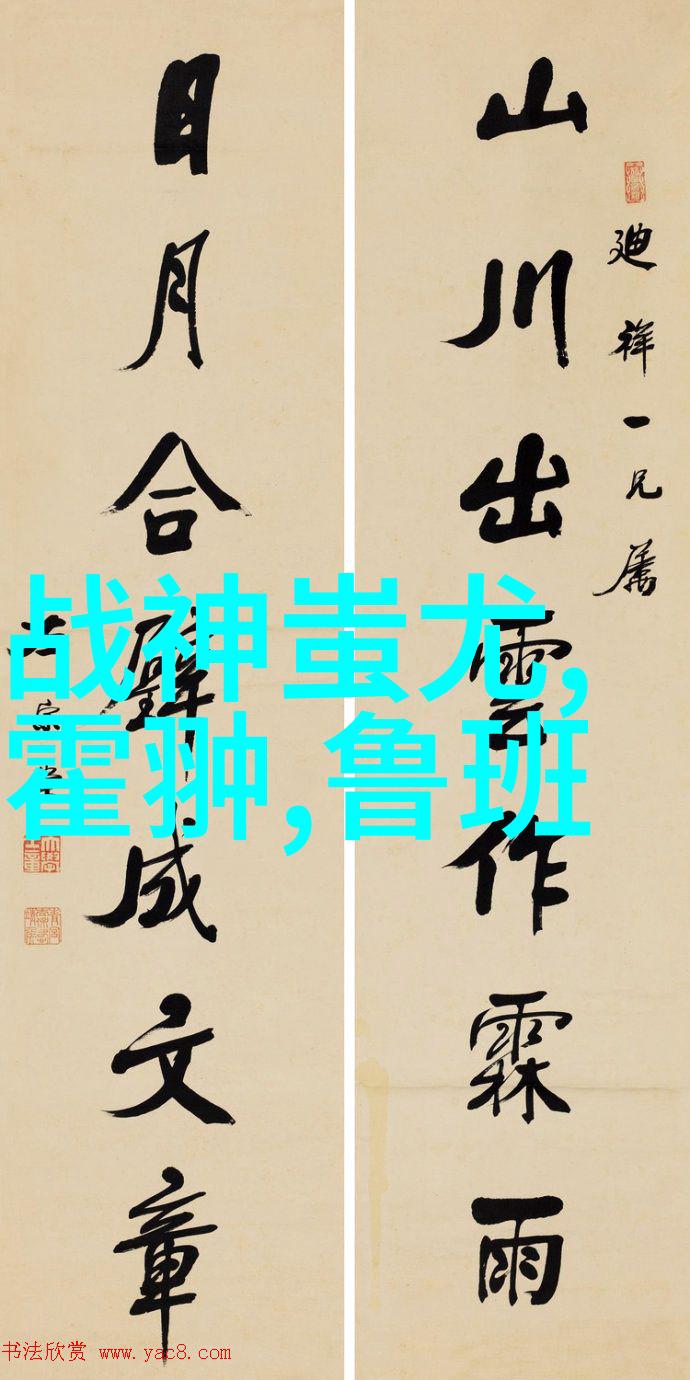 廸祥一兄属
山川出雲作霖雨
日月合璧成文章
战神蚩尤,
霍翀,鲁班
书法欣赏 www.yac8.com